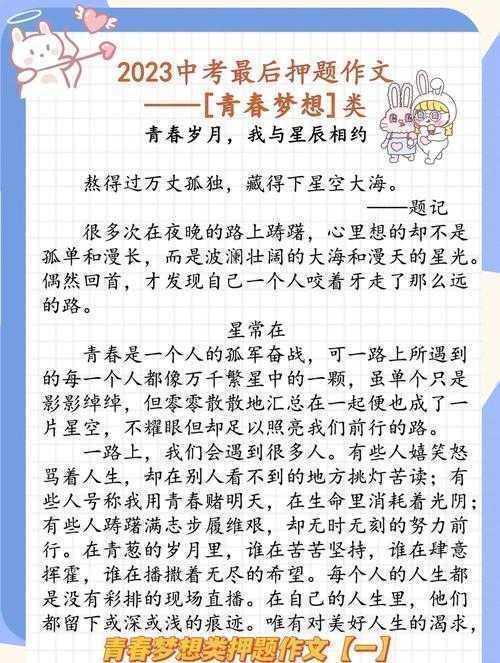 2023中考最后押题作文
——[青春梦想]类
青春岁月，我与星辰相约
熬得过万丈孤独，藏得下星空大海。
——题记
很多次在夜晚的路上踌躇，心里想的却不是
孤单和漫长，而是波澜壮阔的大海和漫天的星光。
偶然回首，才发现自己一个人咬着牙走了那么远
的路。
星常在
青春是一个人的孤军奋战，可一路上所遇到
的每一个人都像万千繁星中的一颗，虽单个只是
影影绰绰，但零零散散地汇总在一起便也成了一
片星空，不耀眼但却足以照亮我们前行的路。
一路上，我们会遇到很多人。有些人嬉笑怒
骂着人生，却在别人看不到的地方挑灯苦读；有
些人号称我用青春赌明天，在生命里消耗着光阴；
有些人踌躇满志步履维艰，却无时无刻的努力前
行。在青葱的岁月里，谁在苦苦坚持，谁在肆意
挥霍，谁在播撒着无尽的希望。每个人的人生都
是没有彩排的现场直播。在自己的人生里，他们
都留下或深或浅的痕迹。唯有对美好人生的渴求，
青春梦想类押题作文【一】